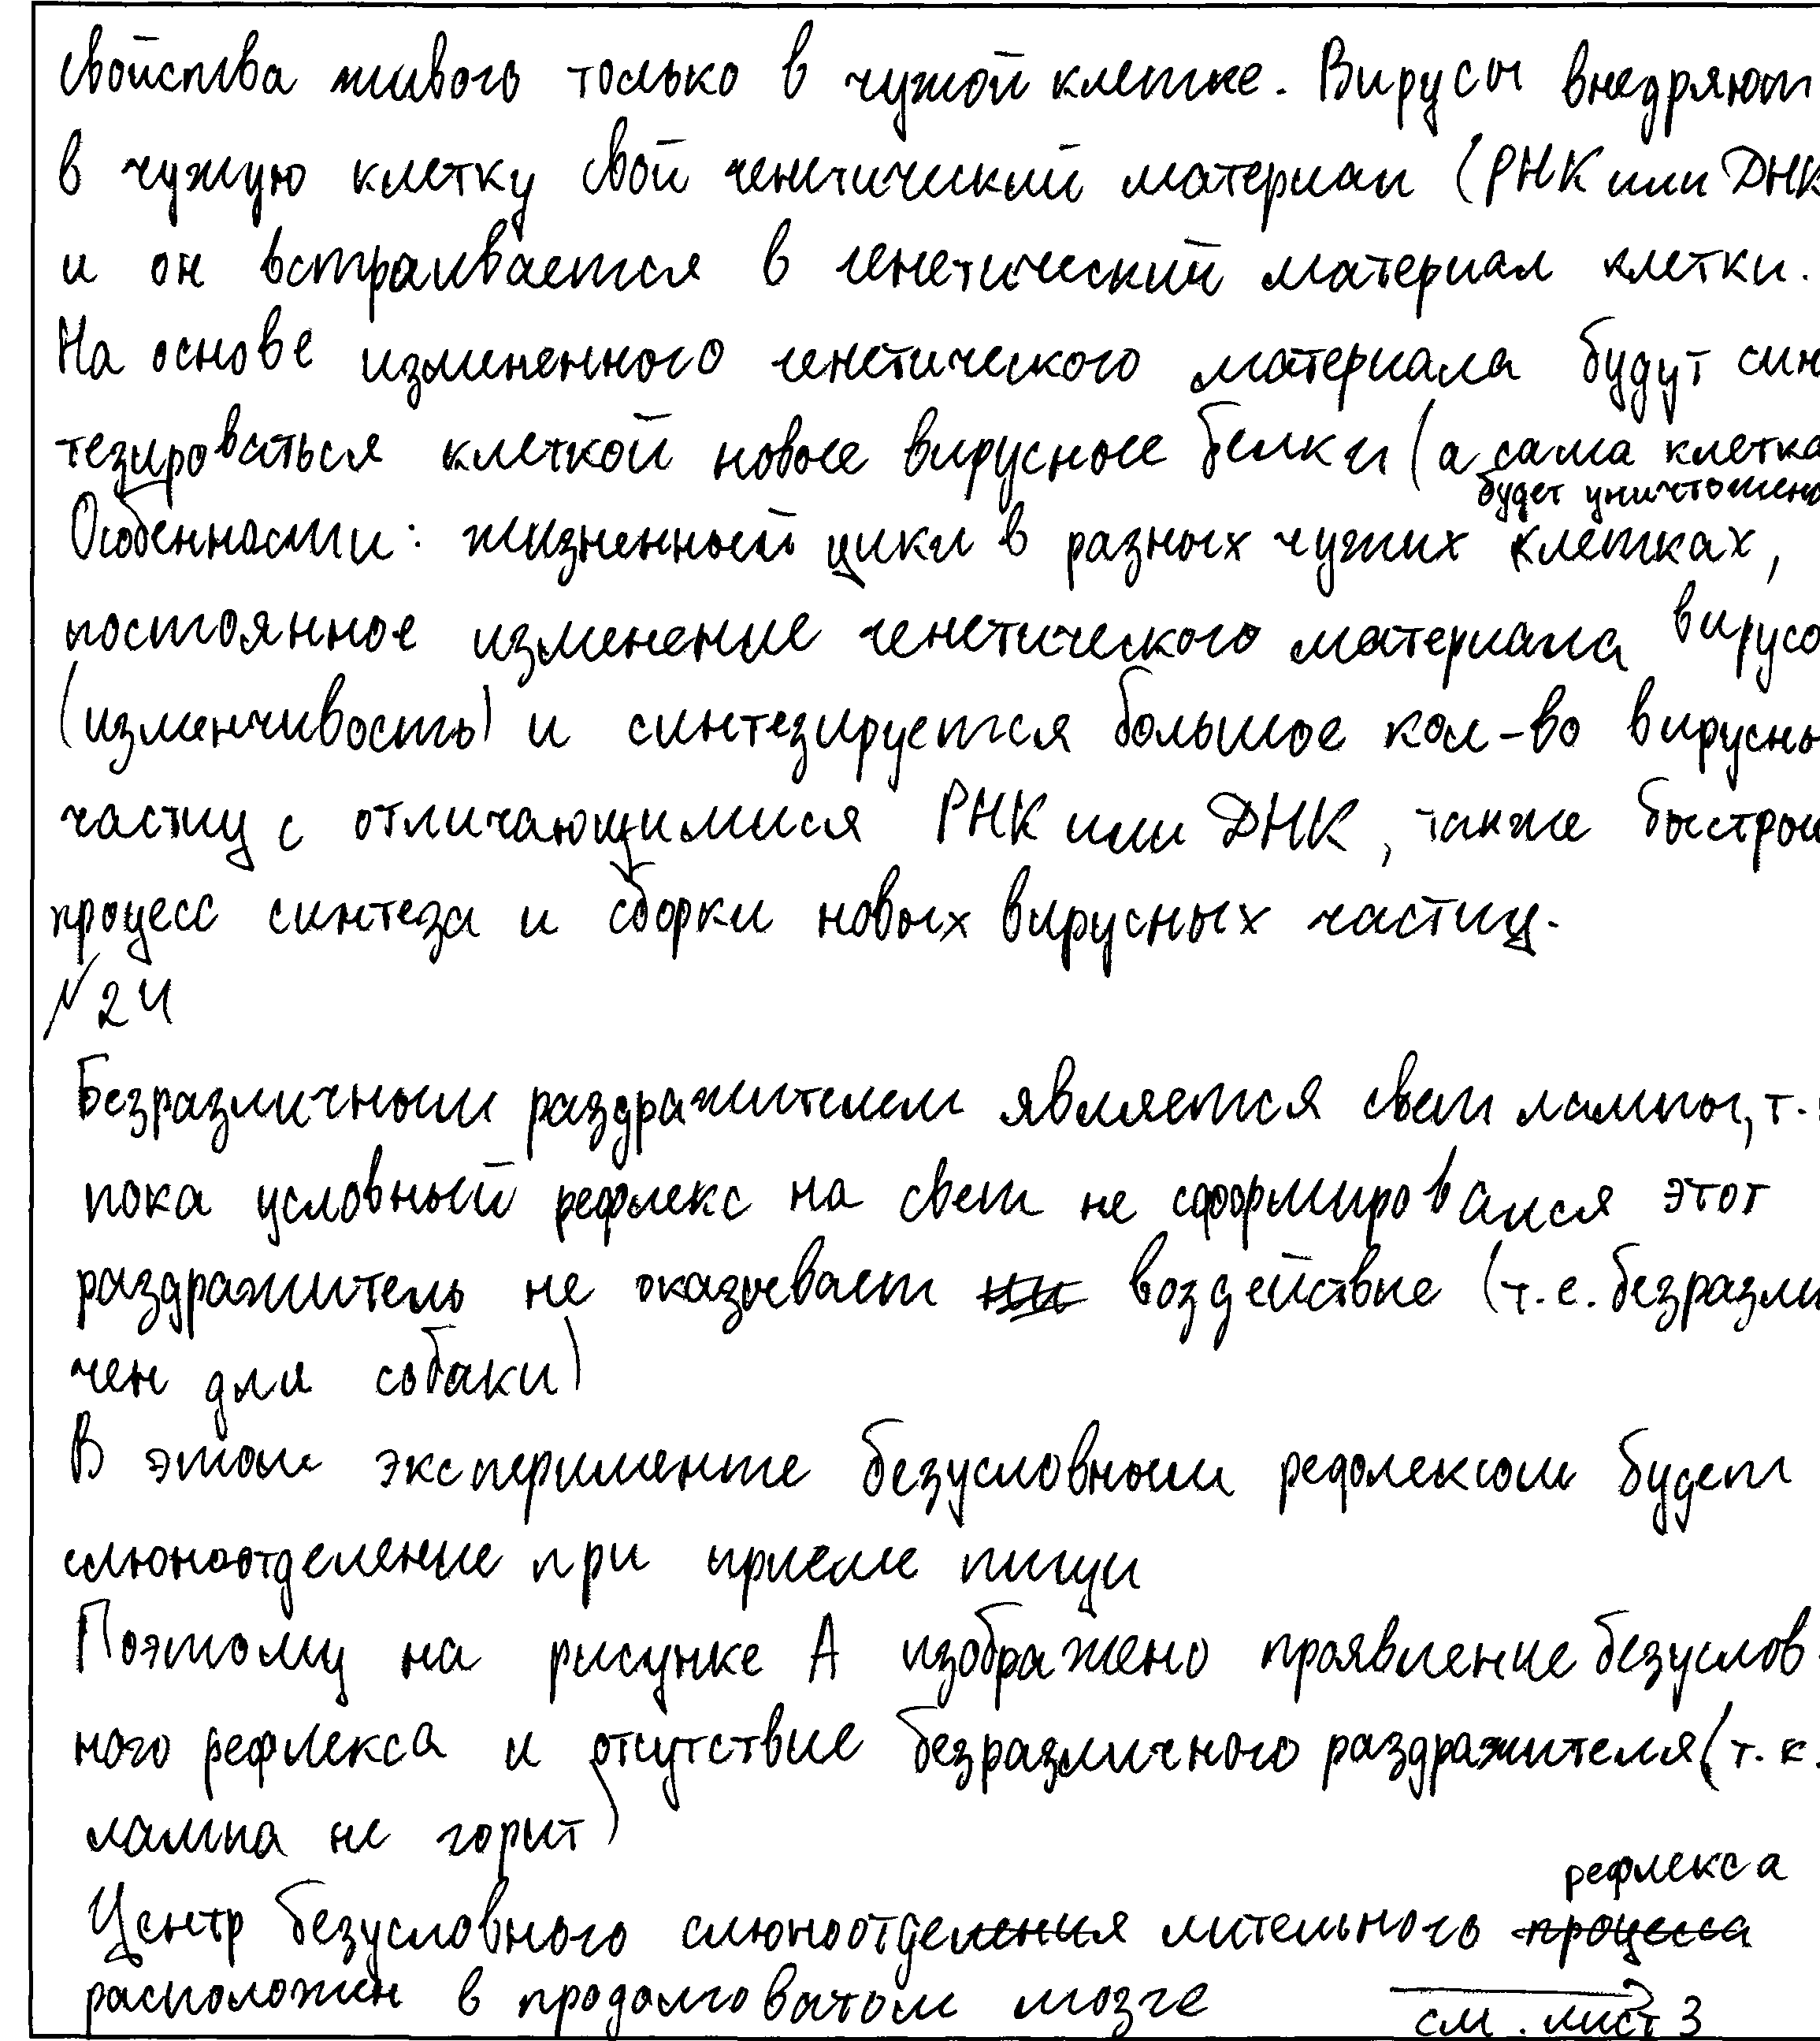 свойства живого только в чужой клетке. Вирусы внедряют
в чужую клетку свой генетический материал (РНК или ДНК
и он встраивается в генетический материал клетки.
На основе измененного генетического материала будут син
тезироваться клеткой новые вирусные белки (а сама клетка
будет уничтожена
Особенности: жизненный цикл в разных чужих клетках,
постоянное изменение генетического материала вирусо
(изменчивость) и синтезируется большое кол-во вирусны
частиц с отличающимися РНК или ДНК, также быстрый
процесс синтеза и сборки новых вирусных частиц.
№24
Безразличным раздражителем является свет лампы, т.к
пока условный рефлекс на свет не сформировался этот
раздражитель не оказывает воздействие (т.е. безразли
чен для собаки)
В этом эксперименте безусловным рефлексом будет
слюноотделение при приеме пищи
Поэтому на рисунке А изображено проявление безуслов-
ного рефлекса и отсутствие безразличного раздражителя (т.к.
лампа не горит)
рефлекса
Центр безусловного слюноотделения лительного процесса
расположен в продолговатом мозге
см. лист 3